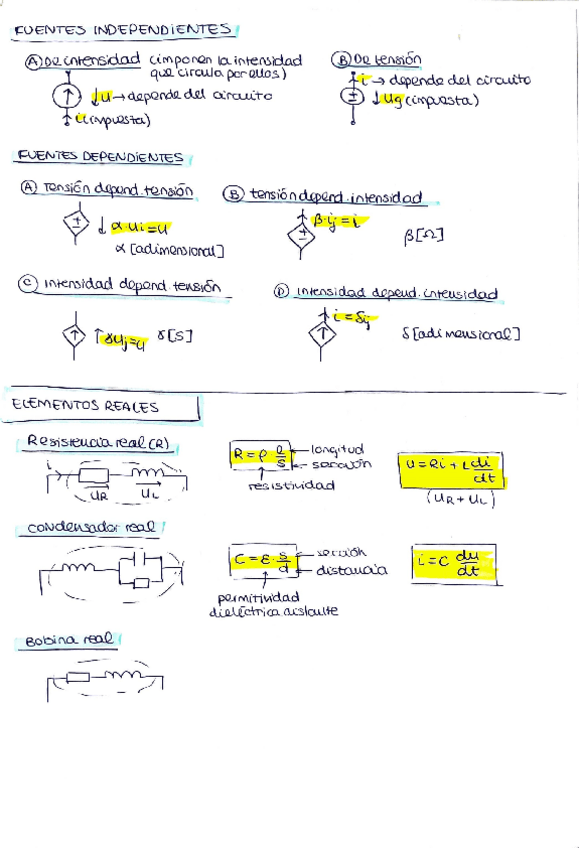 FUENTES INDEPENDIENTES
Ⓐ De intensidad (imponen la intensidad
que circula por ellos)
Ⓑ De tensión
↓ u → depende del circuito
i (impuesta)
i → depende del circuito
↓ ug (impuesta)
FUENTES DEPENDIENTES
Ⓐ Tensión depend. tensión
Ⓑ tensión depend. intensidad
↓ α·ui = u
α [adimensional]
β·ij = i
β[Ω]
Ⓒ Intensidad depend. tensión
Ⓓ Intensidad depend. intensidad
↑ γuj = u γ[S]
i = δij
δ[adimensional]
ELEMENTOS REALES
Resistencia real (R)
i
UR UL
R = ρ l/s
longitud
sección
resistividad
u = Ri + L di/dt
(UR + UL)
Condensador real
C = ε · s/d
sección
distancia
permitividad
dieléctrica aislante
i = C du/dt
Bobina real